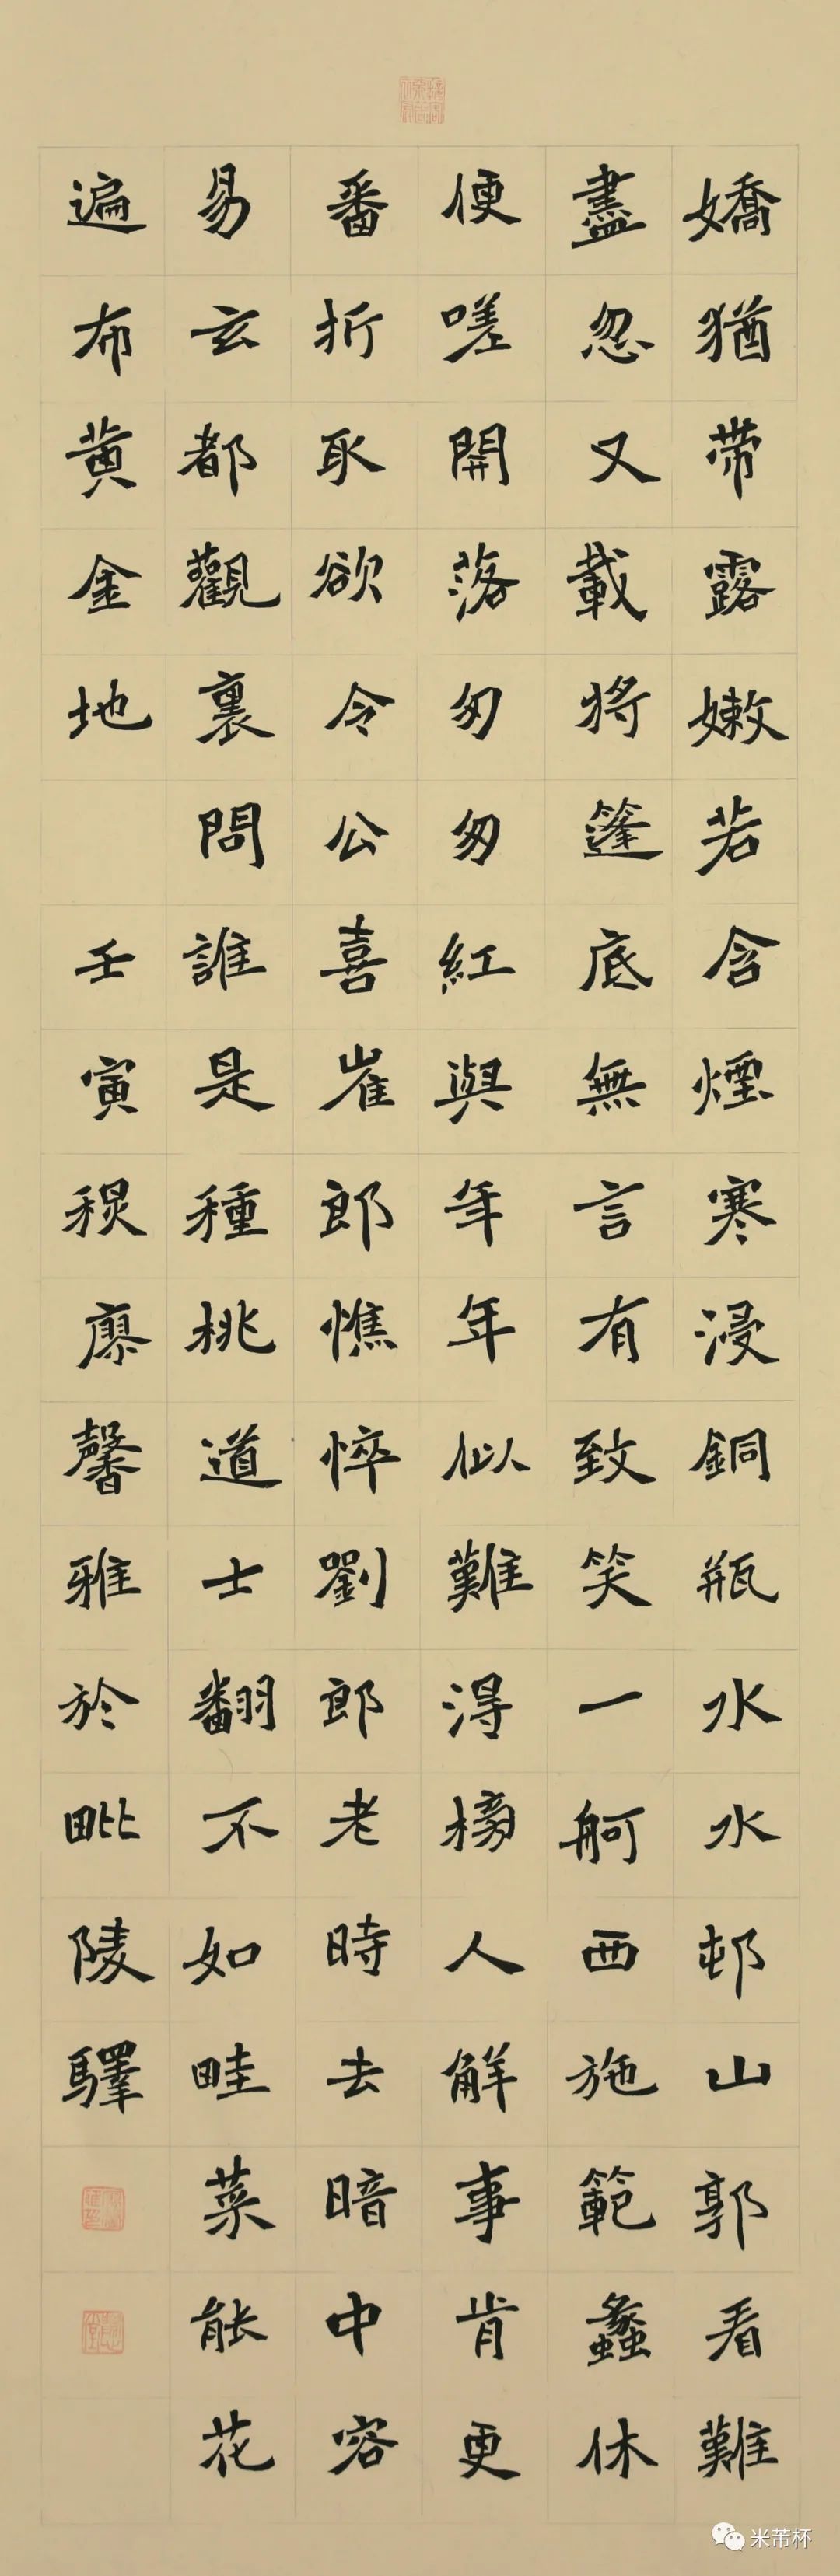 嬌猶帶露嫩若含煙寒浸銅瓶水水邨山郭看難
盡忽又載將篷底無言有致笑一舸西施範蠡休
便嗟開落匆匆紅與年年似難得榜人解事肯更
番折取欲令公喜崔郎憔悴劉郎老時去暗中容
易玄都觀裏問誰是種桃道士翻不如畦菜能花
遍布黃金地 壬寅秋廖馨雅於毗陵驛
米芾杯